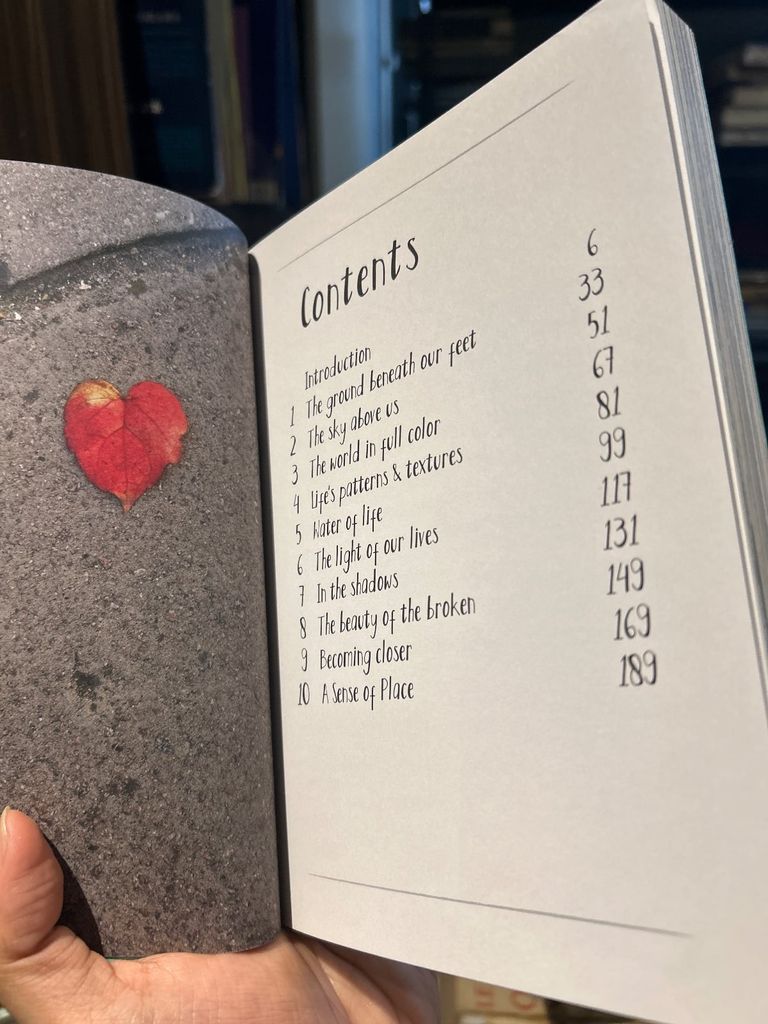 Contents
Introduction 6
1 The ground beneath our feet 33
2 The sky above us 51
3 The world in full color 67
4 Life's patterns & textures 81
5 Water of life 99
6 The light of our lives 117
7 In the shadows 131
8 The beauty of the broken 149
9 Becoming closer 169
10 A Sense of Place 189